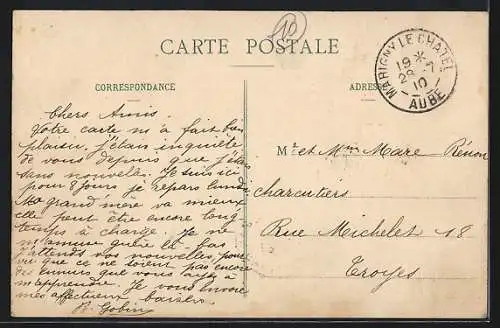 10
CARTE POSTALE
MARIGNY LE CHATEL
19 *
28 - 7
10
AUBE
CORRESPONDANCE
ADRESSE
Chers Amis.
Votre carte m'a fait bien
plaisir, j'étais inquiète
de vous depuis que j'étais
sans nouvelles. Je suis ici
pour 8 jours je repars lundi
Ma grand mère va mieux
elle peut être encore long-
temps à charge. Je ne
m'amuse guère là-bas
j'attends vos nouvelles, pourvu
que ce ne soient pas encore
des ennuis que vous ayez à
m'apprendre. Je vous envoie
mes affectueux baisers
Gobin
Mr et Mme Mare Rénon
Charcutiers
Rue Michelet 18
Troyes